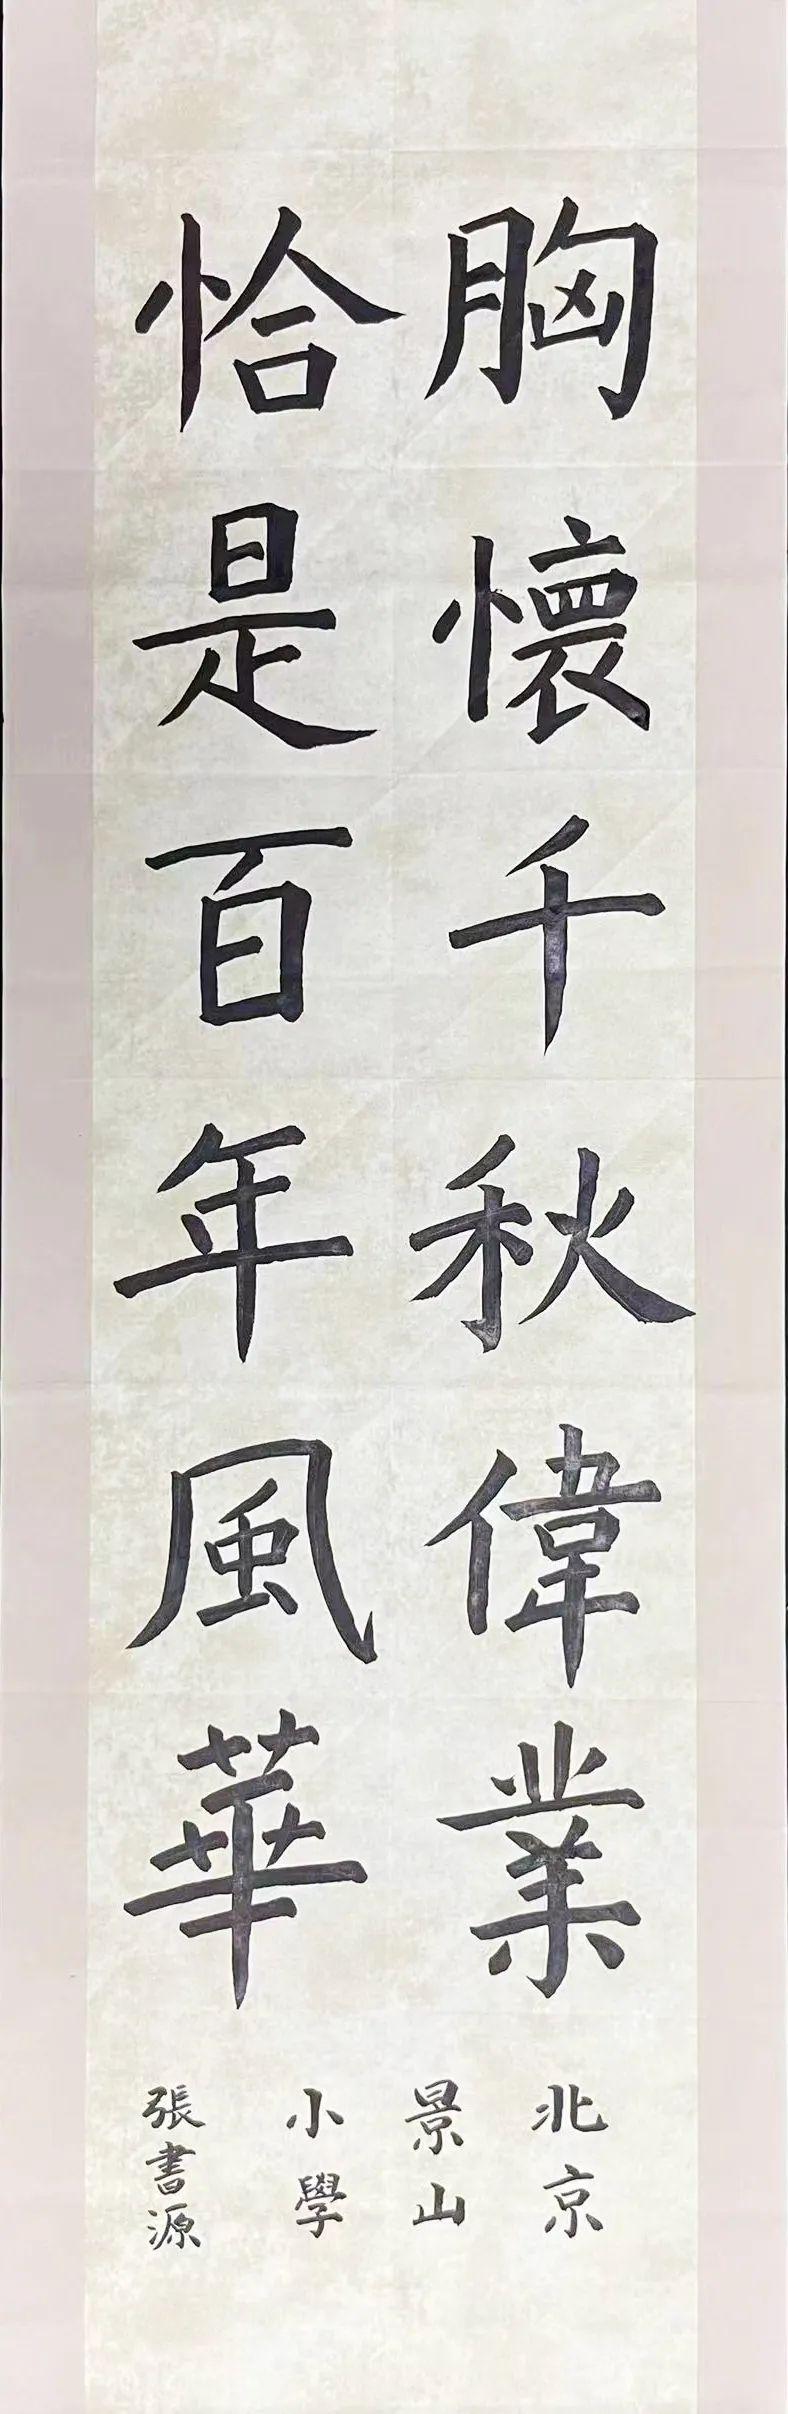 胸懷千秋偉業
恰是百年風華
北京
景山
小學
張書源